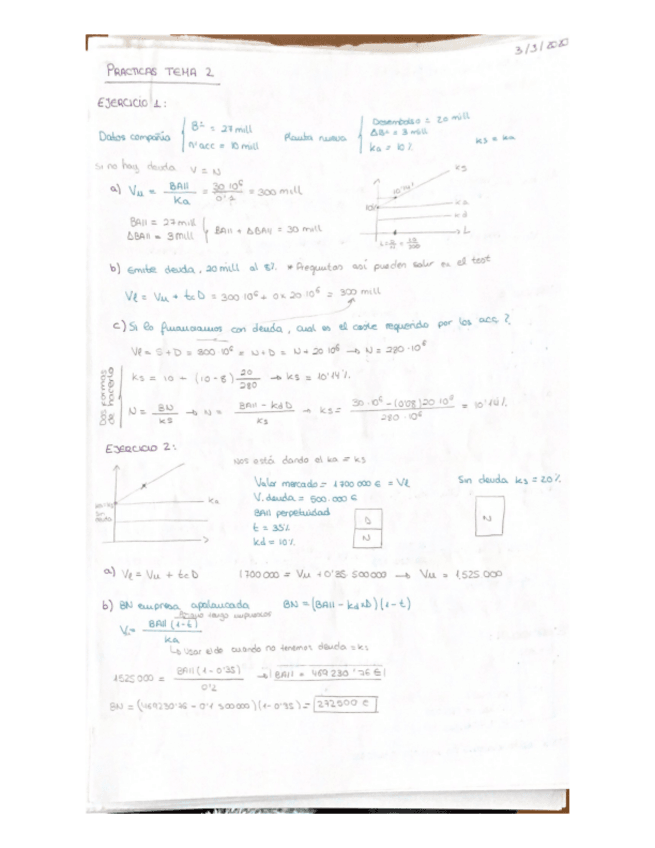 3/3/2020
PRACTICAS TEMA 2
EJERCICIO 1:
Datos compañía { Bº = 27 mill
nºacc = 10 mill
Planta nueva { Desembolso = 20 mill
ΔBº = 3 mill
ka = 10%
ks = ka
Si no hay deuda V = N
a) Vu = BAII / Ka = 30·10⁶ / 0'1 = 300 mill
BAII = 27 mill
ΔBAII = 3 mill } BAII + ΔBAII = 30 mill
ks
10'14%
ka
kd
L
b) Emite deuda, 20 mill al 8% * Preguntas así pueden salir en el test
Vl = Vu + tcD = 300·10⁶ + 0 x 20·10⁶ = 300 mill
c) Si lo financiamos con deuda, cual es el coste requerido por los acc?
Vl = S + D = 300·10⁶ = N + D = N + 20·10⁶ → N = 280·10⁶
Dos formas de hacerlo
ks = 10 + (10-8) 20/280 → ks = 10'14%
N = BN / ks → N = BAII - kdD / ks → ks = 30·10⁶ - (0'08)20·10⁶ / 280·10⁶ = 10'14%
EJERCICIO 2:
Nos está dando el ka = ks
Valor mercado = 1700 000 € = Vl
V. deuda = 500.000 €
BAII perpetuidad
t = 35%
kd = 10%
Sin deuda ks = 20%
D
N
N
Sin deuda
ka
a) Vl = Vu + tcD 1700 000 = Vu + 0'35·500000 → Vu = 1525 000
b) BN empresa apalancada BN = (BAII - kd·D)(1-t)
Porque tengo impuestos
V = BAII (1-t) / ka
↳ Usar el de cuando no tenemos deuda = ks
1525 000 = BAII (1-0'35) / 0'2 → BAII = 469 230'76 €
BN = (469230'76 - 0'1·500000)(1-0'35) = 272000 €